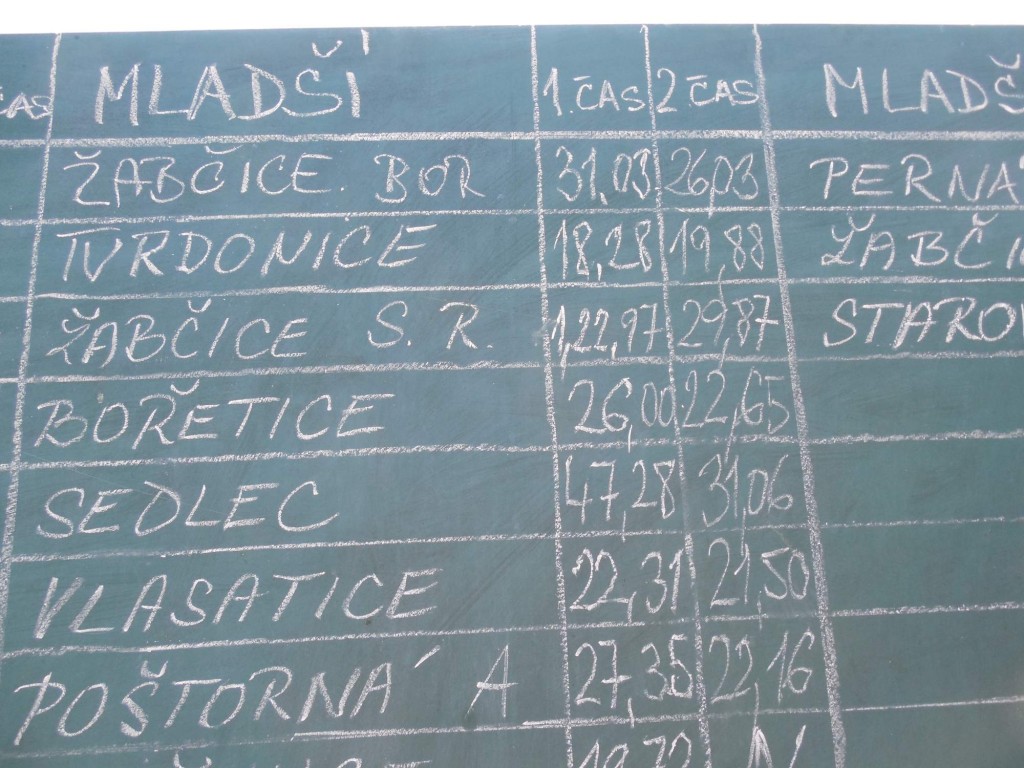 ČAS MLADŠÍ 1. ČAS 2 ČAS MLADŠ
ŽABČICE. BOR 31,03 26,03 PERNA
TVRDONICE 18,28 19,88 ŽABČI
ŽABČICE S. R. 1,22,97 29,87 STAROV
BOŘETICE 26,00 22,65
SEDLEC 47,28 31,06
VLASATICE 22,31 21,50
POŠTORNÁ A 27,35 22,16
19,72 N